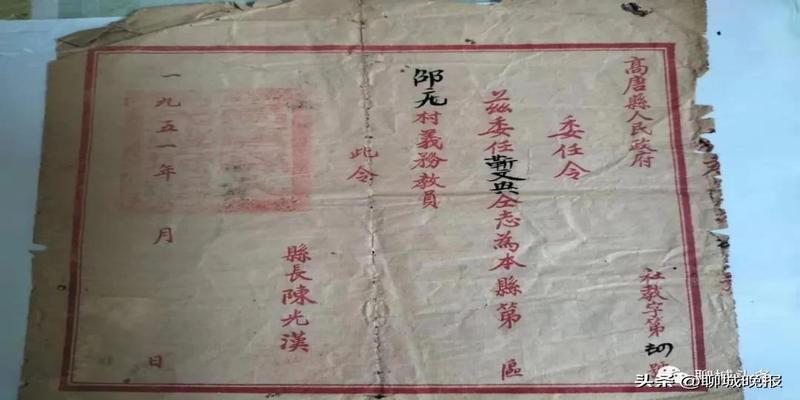 高唐縣人民政府
委任令
社教字第 號
茲委任靳又典仝志為本縣第 區
邵元村義務教員
此令
縣長陳光漢
一九五一年 月 日
头条@聊城晚报
聊城头条